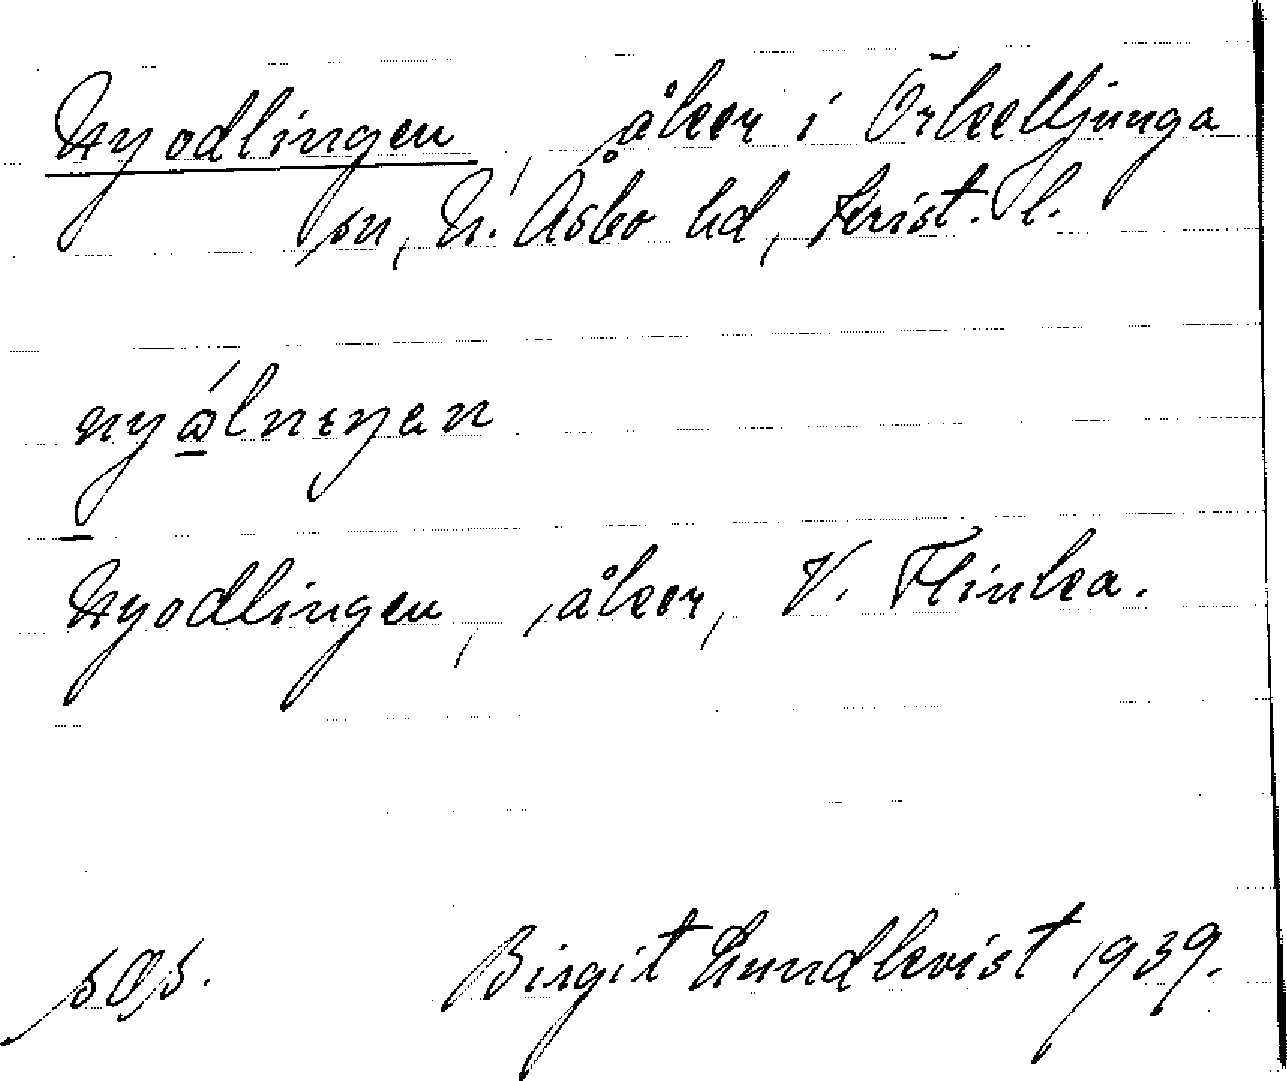 Nyodlingen, åker i Örkelljunga
sn, N. Åsbo hd, Krist. l.
Nyodlingen, åker, V. Flinka.
sOs. Birgit Lundkvist 1939.